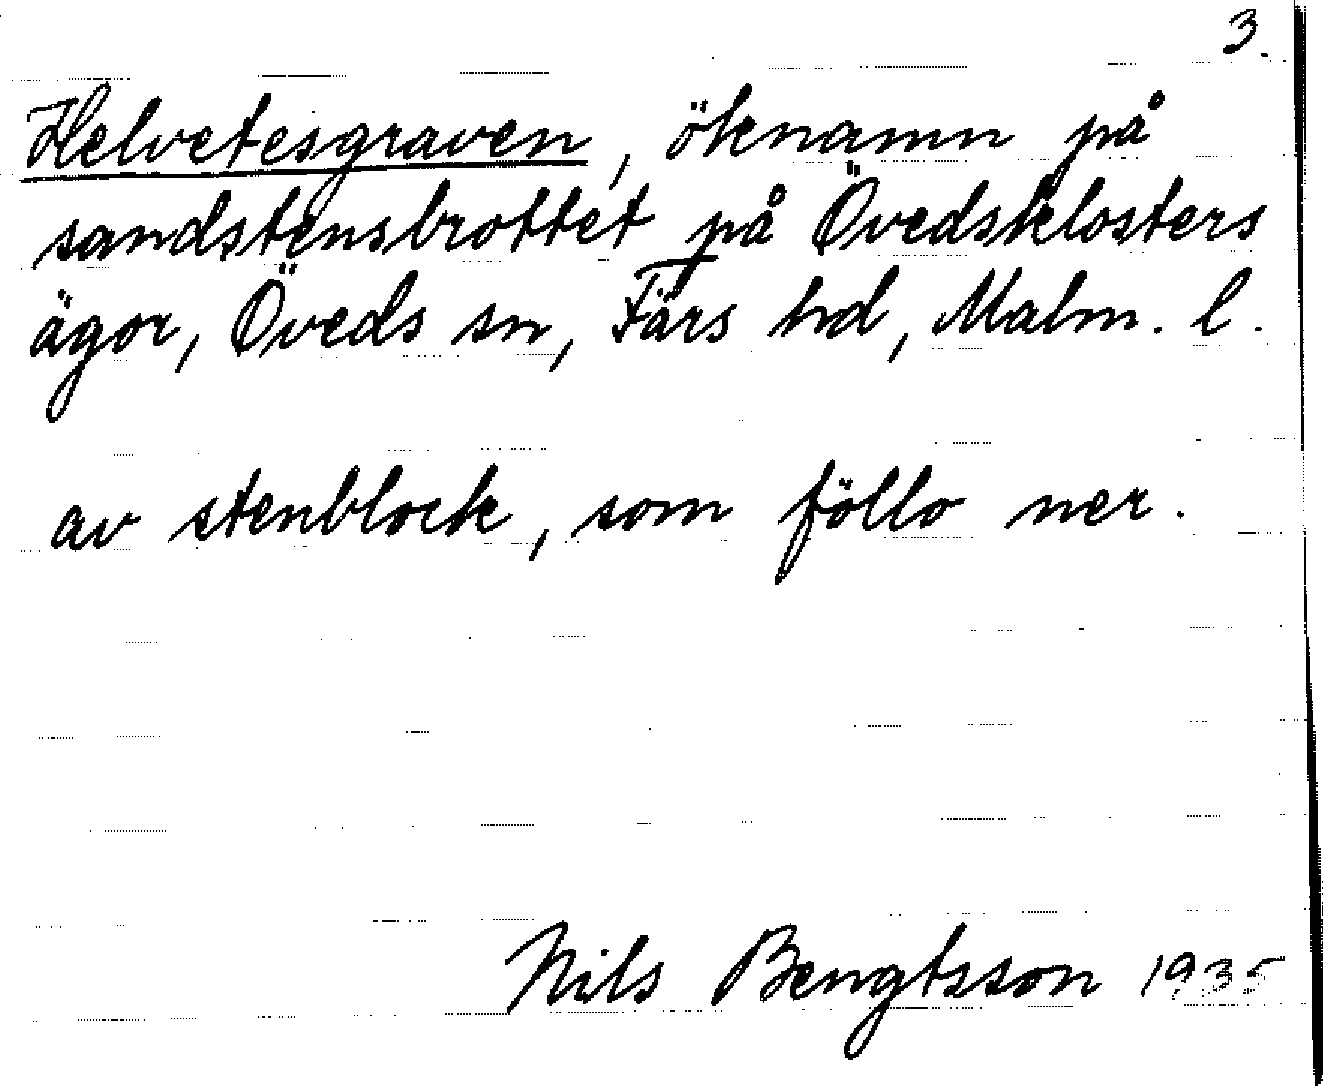 3.
Helvetesgraven, öknamn på
sandstensbrottet på Övedsklosters
ägor, Öveds sn, Färs hd, Malm. l.
av stenblock, som föllo ner.
Nils Bengtsson 1935